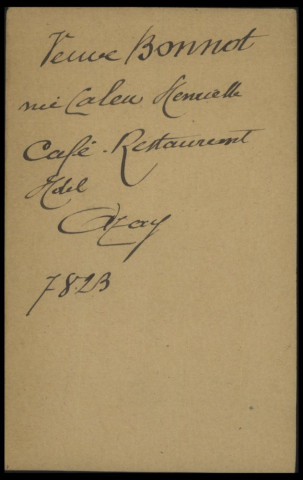 Veuve Bonnot
née Caleu
Café-Restaurant
Hotel
Azay
7823